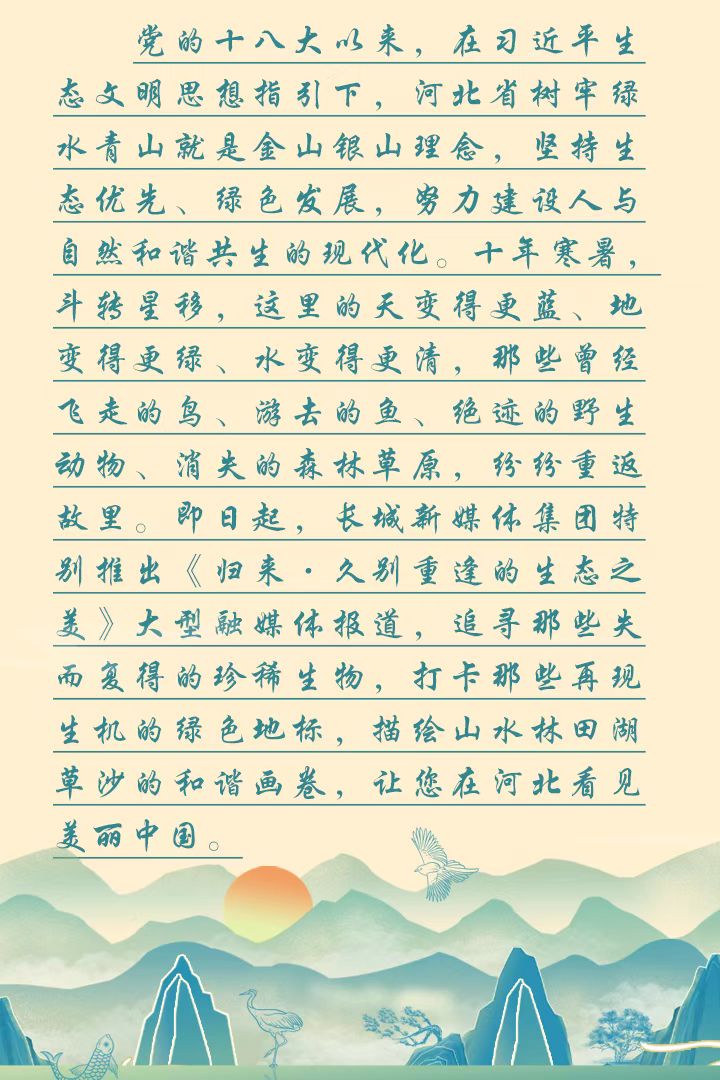 党的十八大以来，在习近平生
态文明思想指引下，河北省树牢绿
水青山就是金山银山理念，坚持生
态优先、绿色发展，努力建设人与
自然和谐共生的现代化。十年寒暑，
斗转星移，这里的天变得更蓝、地
变得更绿、水变得更清，那些曾经
飞走的鸟、游去的鱼、绝迹的野生
动物、消失的森林草原，纷纷重返
故里。即日起，长城新媒体集团特
别推出《归来·久别重逢的生态之
美》大型融媒体报道，追寻那些失
而复得的珍稀生物，打卡那些再现
生机的绿色地标，描绘山水林田湖
草沙的和谐画卷，让您在河北看见
美丽中国。